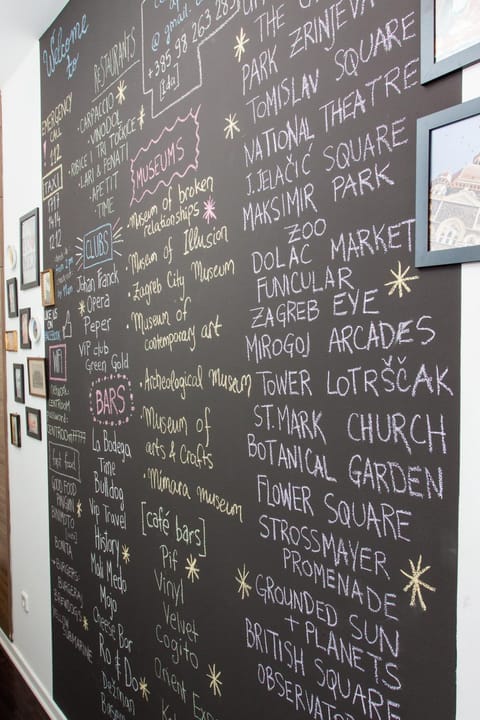 Welcome
to
EMERGENCY
CALL
112
TAXI
1717
1414
1212
WIFI
fast food
GOOD FOOD
PINGVIN
BURGERI
SUBMARINE
RESTAURANTS
CARPACCIO
VINODOL
TRI TOČKICE
LARI & PENATI
APETIT
TIME
CLUBS
Johan Franck
Opera
Peper
VIP club
Green Gold
BARS
La Bodega
Time
Bulldog
Vip Travel
History
Mali Medo
Mojo
Cheese Bar
Ko & Do
Dežman
@ gmail.
+385 98 263 28
[Ida]
MUSEUMS
Museum of broken
relationships
Museum of Illusion
Zagreb City Museum
Museum of
contemporary art
Archeological museum
Museum of
arts & crafts
Mimara museum
[café bars]
Pif
Vinyl
Velvet
Cogito
Orient Expres
THE
PARK ZRINJEVA
TOMISLAV SQUARE
NATIONAL THEATRE
J.JELAČIĆ SQUARE
MAKSIMIR PARK
ZOO
DOLAC MARKET
FUNICULAR
ZAGREB EYE
MIROGOJ ARCADES
TOWER LOTRŠČAK
ST.MARK CHURCH
BOTANICAL GARDEN
FLOWER SQUARE
STROSSMAYER
PROMENADE
GROUNDED SUN
+ PLANETS
BRITISH SQUARE
OBSERVATOR